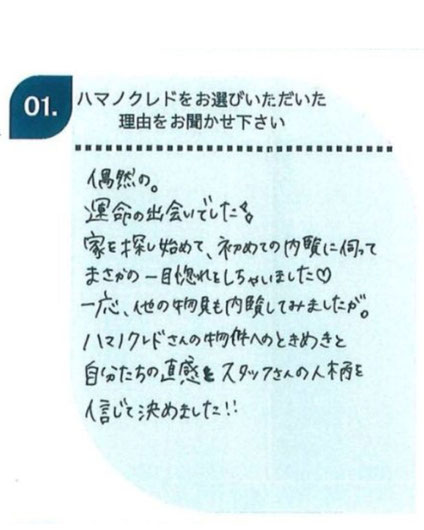 01.
ハマノクレドをお選びいただいた
理由をお聞かせ下さい
偶然の。
運命の出会いでした
家を探し始めて、初めての内覧に伺って
まさかの一目惚れをしちゃいました♡
一応、他の物見も内覧してみましたが。
ハマノクレドさんの物件へのときめきと
自分たちの直感とスタッフさんの人柄を
信じて決めました!!